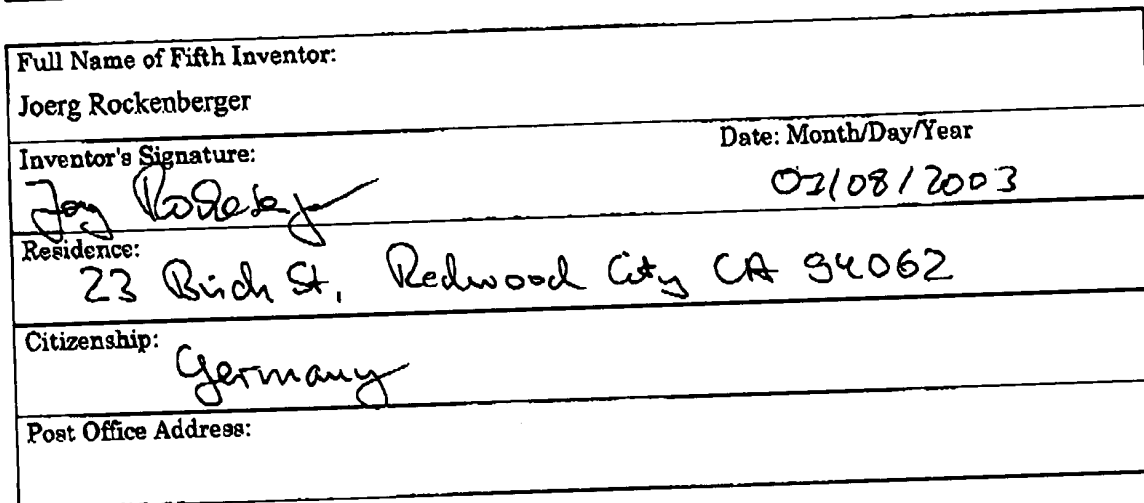 Full Name of Fifth Inventor:
Joerg Rockenberger
Inventor's Signature:
Date: Month/Day/Year
/08/2003
Residence:
23 Birch St, Redwood City CA 94062
Citizenship:
Germany
Post Office Address: